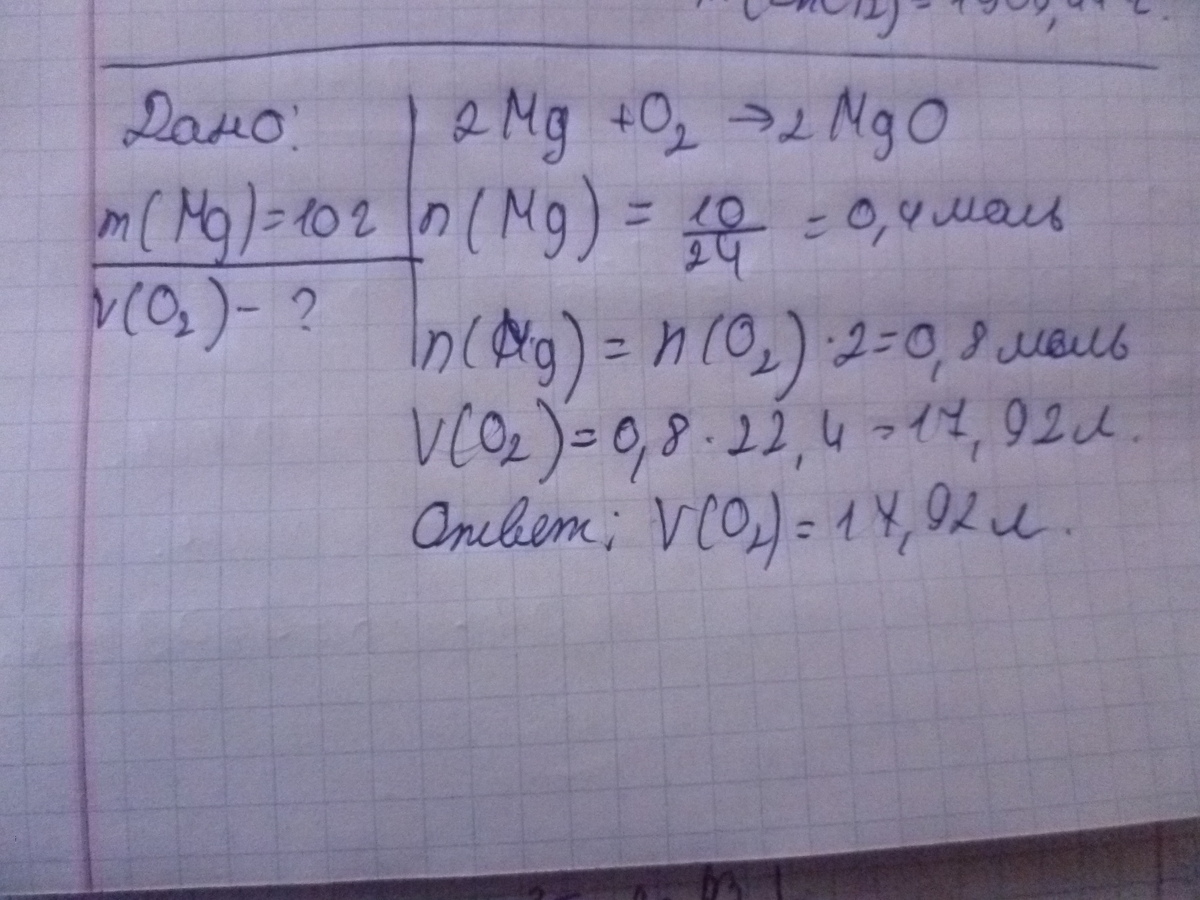 Дано:
m(Mg)=10г
V(O₂)-?
2Mg +O₂ →2MgO
n(Mg) = 10/24 = 0,4моль
n(Mg) = n(O₂)·2=0,8моль
V(O₂)=0,8·22,4=17,92л.
Ответ: V(O₂)=17,92л.